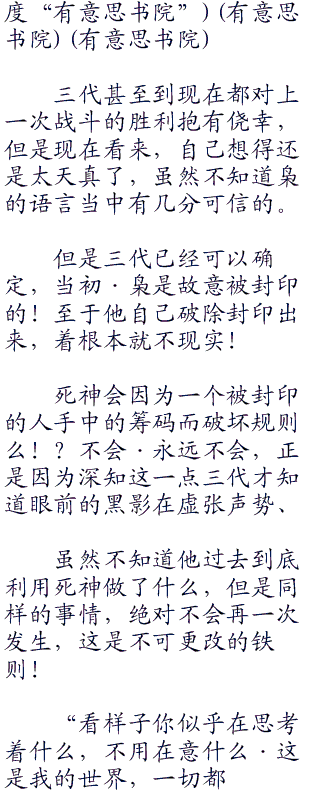 度“有意思书院”) (有意思
书院) (有意思书院)
三代甚至到现在都对上
一次战斗的胜利抱有侥幸，
但是现在看来，自己想得还
是太天真了，虽然不知道枭
的语言当中有几分可信的。
但是三代已经可以确
定，当初·枭是故意被封印
的！至于他自己破除封印出
来，着根本就不现实！
死神会因为一个被封印
的人手中的筹码而破坏规则
么！？不会·永远不会，正
是因为深知这一点三代才知
道眼前的黑影在虚张声势、
虽然不知道他过去到底
利用死神做了什么，但是同
样的事情，绝对不会再一次
发生，这是不可更改的铁
则！
“看样子你似乎在思考
着什么，不用在意什么·这
是我的世界，一切都